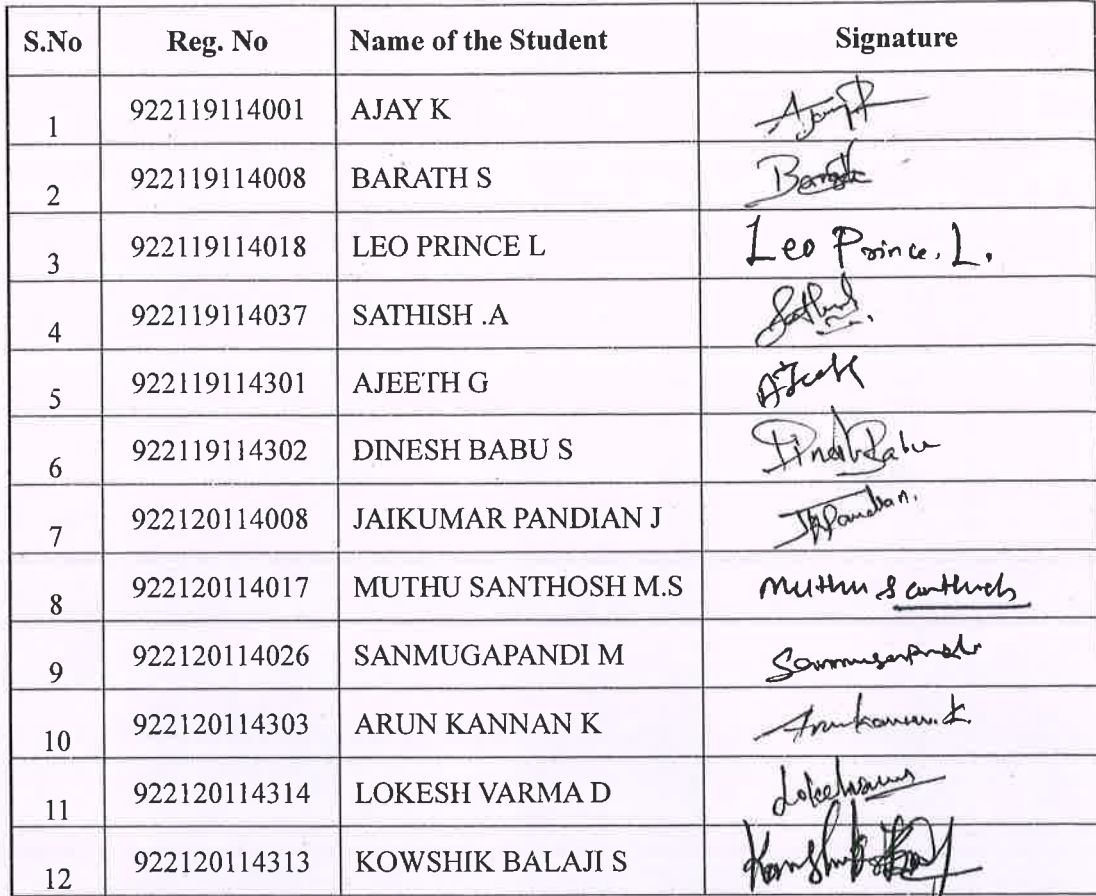 S.No Reg. No Name of the Student Signature
1 922119114001 AJAY K Ajay
2 922119114008 BARATH S Barath
3 922119114018 LEO PRINCE L Leo Prince. L.
4 922119114037 SATHISH .A
5 922119114301 AJEETH G
6 922119114302 DINESH BABU S Dinesh Babu
7 922120114008 JAIKUMAR PANDIAN J
8 922120114017 MUTHU SANTHOSH M.S Muthu
9 922120114026 SANMUGAPANDI M
10 922120114303 ARUN KANNAN K
11 922120114314 LOKESH VARMA D
12 922120114313 KOWSHIK BALAJI S